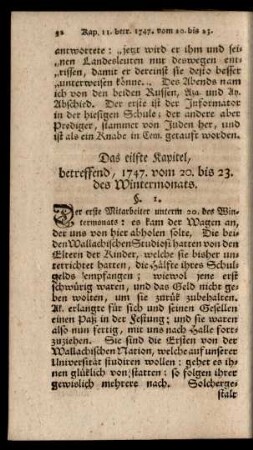 82 Kap. 11. betr. 1747. vom 20. bis 23.
antwortete: „jetzt wird er ihm und sei-
nen Landesleuten nur deswegen ent-
„rissen, damit er dereinst sie desto besser
„unterweisen könne... Des Abends nam
ich von den beiden Russen, Aza. und Ay.
Abschied. Der erste ist der Informator
in der hiesigen Schule; der andere aber
Prediger, stammet von Juden her, und
ist als ein Knabe in Cem. getauft worden.
Das eilfte Kapitel,
betreffend, 1747. vom 20. bis 23.
des Wintermonats.
§. 1.
Der erste Mitarbeiter unterm 20. des Win-
termonats: es kam der Wagen an,
der uns von hier abholen solte. Die bei-
den Wallachischen Studiosi hatten von den
Eltern der Kinder, welche sie bisher un-
terrichtet hatten, die Hälfte ihres Schul-
gelds empfangen; wiewol jene erst
schwürig waren, und das Geld nicht ge-
ben wolten, um sie zurük zubehalten.
Ak. erlangte für sich und seinen Gesellen
einen Paß in der Festung; und sie waren
also nun fertig, mit uns nach Halle fort-
zuziehen. Sie sind die Ersten von der
Wallachischen Nation, welche auf unserer
Universität studiren wollen: gehet es ih-
nen glüklich von statten; so folgen ihrer
gewislich mehrere nach. Solcherge-
stalt